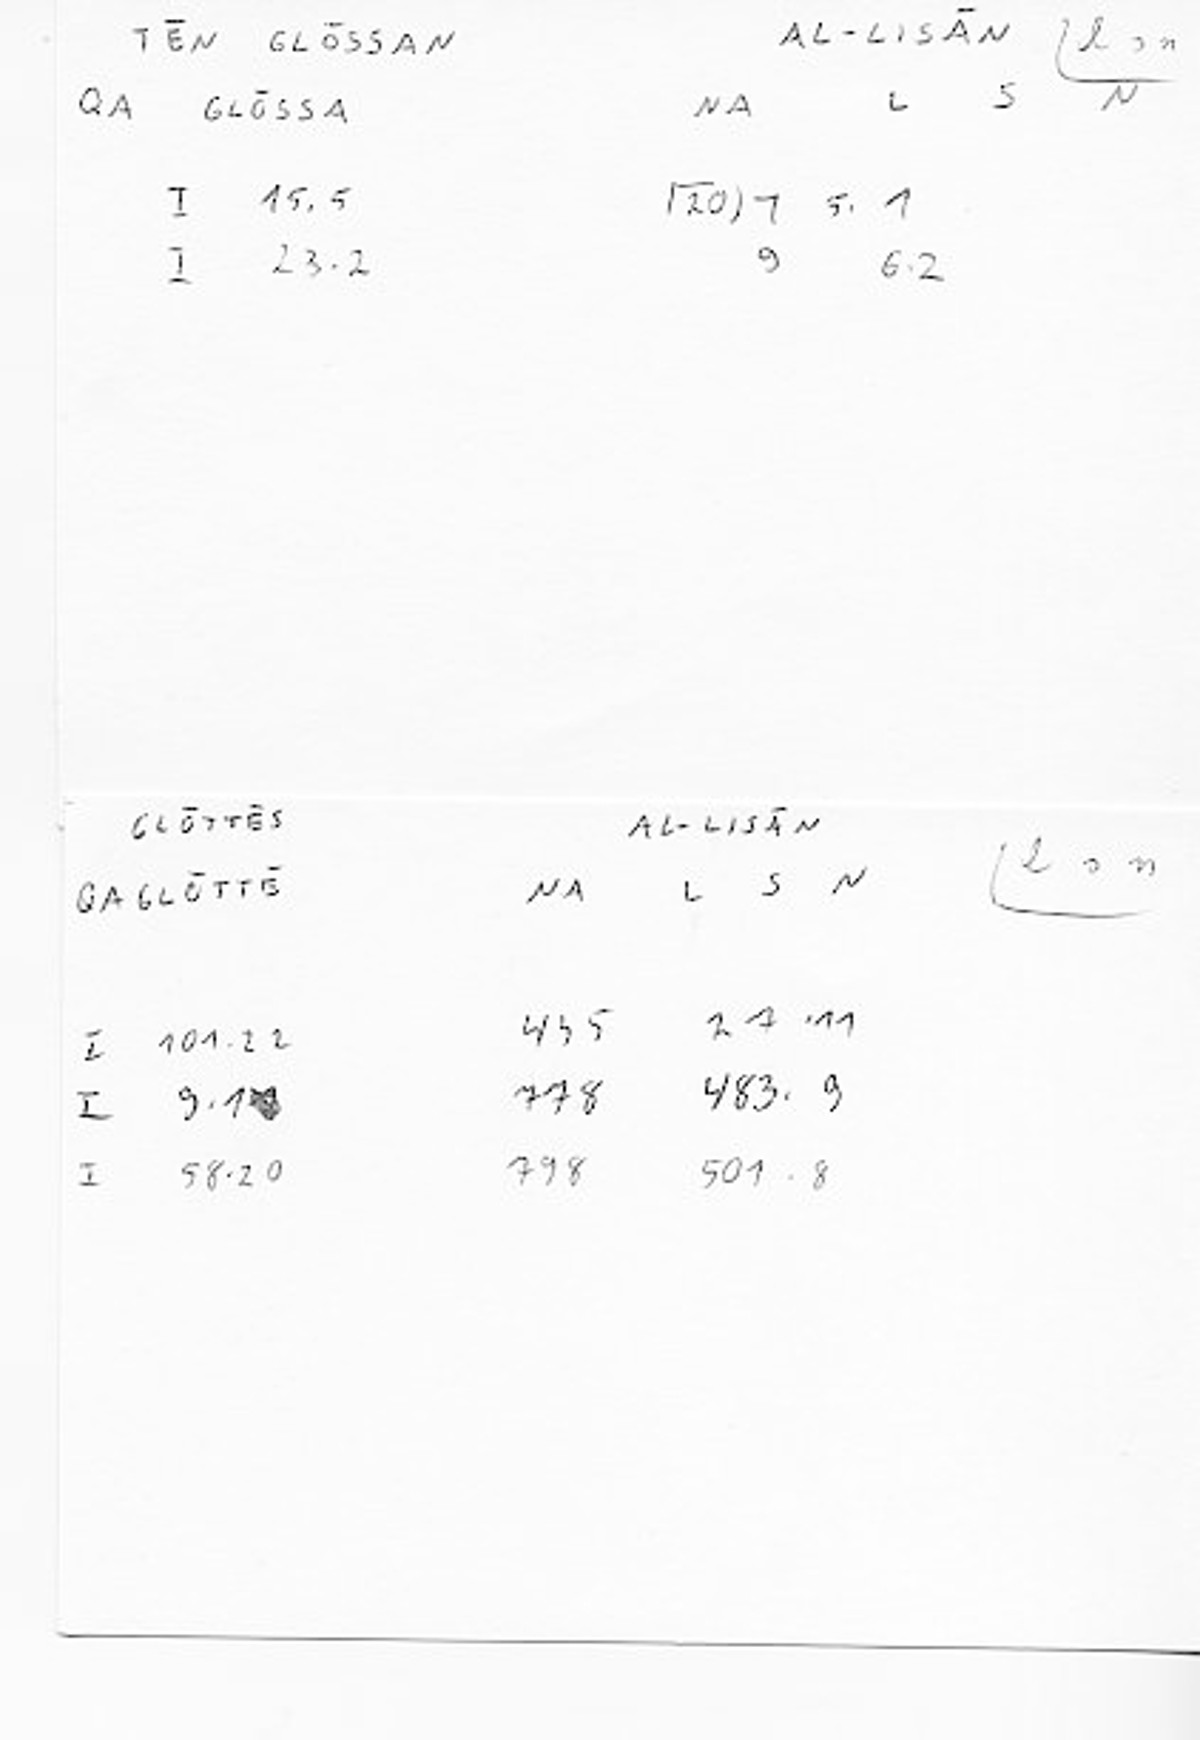 TĒN GLŌSSAN AL-LISĀN lsn
QA GLŌSSA NA L S N
I 15.5 7 5.1
I 23.2 9 6.2
GLŌTTĒS AL-LISĀN lsn
QA GLŌTTĒ NA L S N
I 101.22 445 27.11
I 9.1 778 483.9
I 58.20 798 501.8